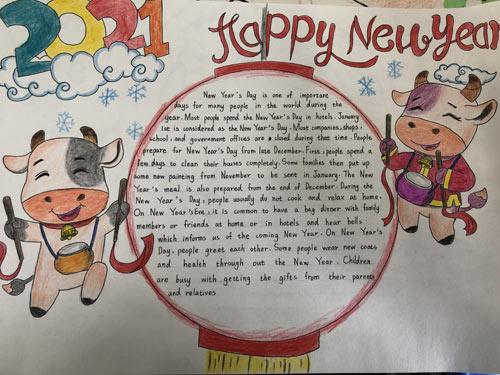 2021
Happy New Year
New Year's Day is one of important
days for many people in the world during the
year. Most people spend the New Year's Day in hotels. January
1se is considered as the New Year's Day. Most companies, shops,
school, and government offices are closed during that time. People
prepare for New Year's Day from late December. First, people spend a
few days to clean their houses completely. Some families then put up
some new painting from November to be sent in January. The New
Year's meal is also prepared from the end of December. During the
New Year's Day, people usually do not cook and relax at home.
On New Year's Eve, it is common to have a bag dinner with family
members or friends at home or in hotels and hear bells,
which informs us of the coming New Year. On New Year's
Day, people greet each other. Some people wear new coats
and health through out the New Year. Children
are busy with getting the gifts from their parents
and relatives